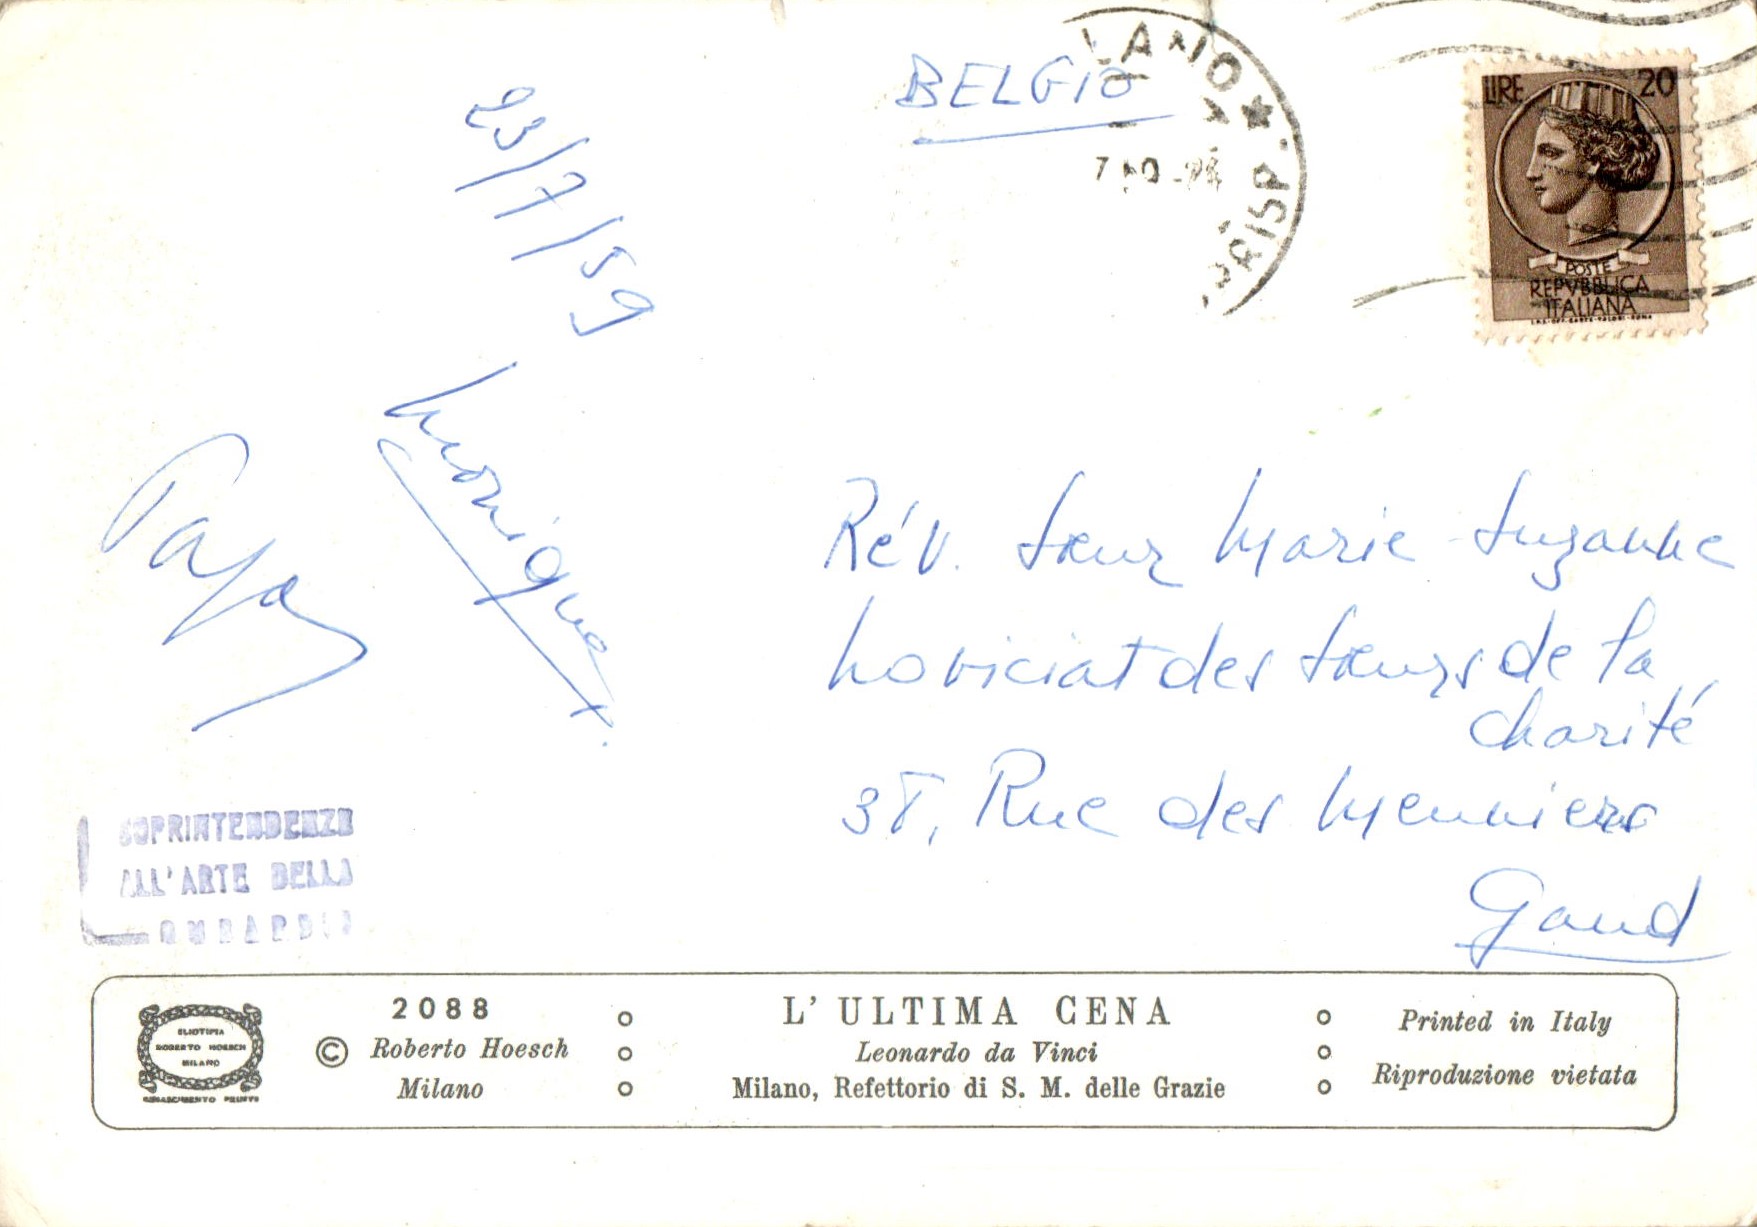 BELGIO
23/7/59
Monique
Papa
Rév. Sœur Marie-Suzanne
Noviciat des Sœurs de la
charité
38, Rue des Meuniers
Gand
LANO
LIRE 20
POSTE
REPVBBLICA
ITALIANA
SOPRINTENDENZE
ALL'ARTE DELLA
2088
© Roberto Hoesch
Milano
ELIOTIPIA
ROBERTO HOESCH
MILANO
L'ULTIMA CENA
Leonardo da Vinci
Milano, Refettorio di S. M. delle Grazie
Printed in Italy
Riproduzione vietata